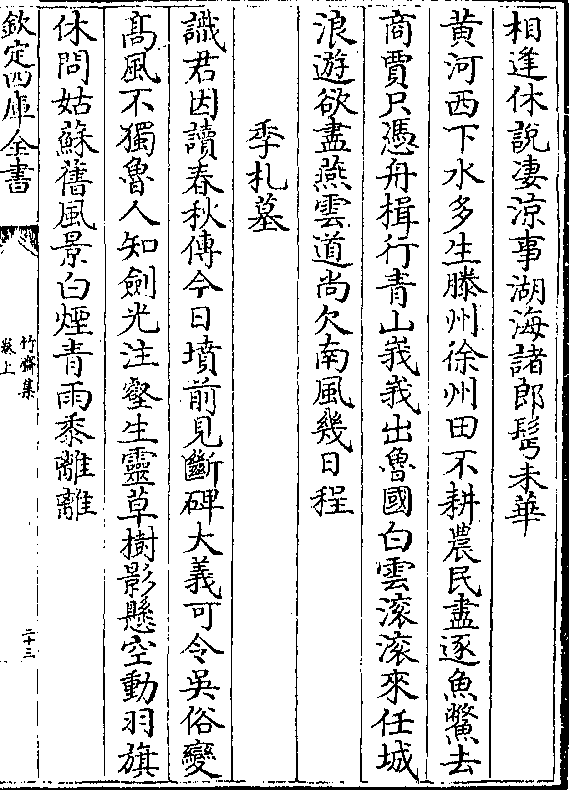 相逢休說凄涼事湖海諸郎髩未華
黄河西下水多生滕州徐州田不耕農民盡逐魚鱉去
商賈只憑舟楫行青山峩峩出魯國白雲滚滚來任城
浪遊欲盡燕雲道尚欠南風幾日程
季札墓
識君因讀春秋傳今日墳前見斷碑大義可令吳俗變
髙風不獨魯人知劍光注壑生靈草樹影懸空動羽旗
休問姑蘇舊風景白煙青雨黍離離
欽定四庫全書
竹齋集
卷上
二十三